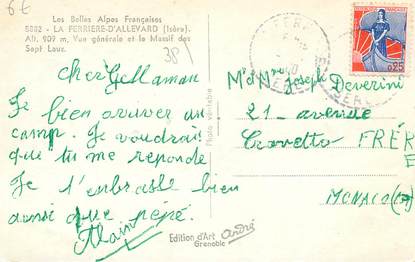 6€
Les Belles Alpes Françaises
5882 - LA FERRIERE-D'ALLEVARD (Isère)
Alt. 909 m, Vue générale et le Massif des
Sept Laux.
38
Cher
maman
Je bien arriver au
camp. Je voudrai
que tu me reponde
Je t'embrasse bien
ainsi que pépé.
Alain
Photo véritable
Edition d'Art André
Grenoble
0,25
M et Mme Joseph Deverini
21 - avenue
Crovetto FRÈRE
MONACO